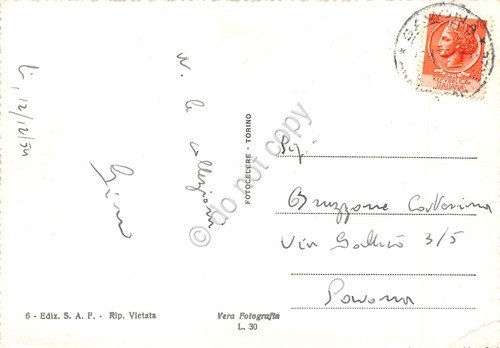 li, 12/12/54
W. le collezioni
Gino
FOTOCELERE - TORINO
Sig.
Bruzzone Catterina
Via 3/5
Savona
6 - Ediz. S. A. F. - Rip. Vietata
Vera Fotografia
L. 30
REPVBBLICA
ITALIANA
© do not copy